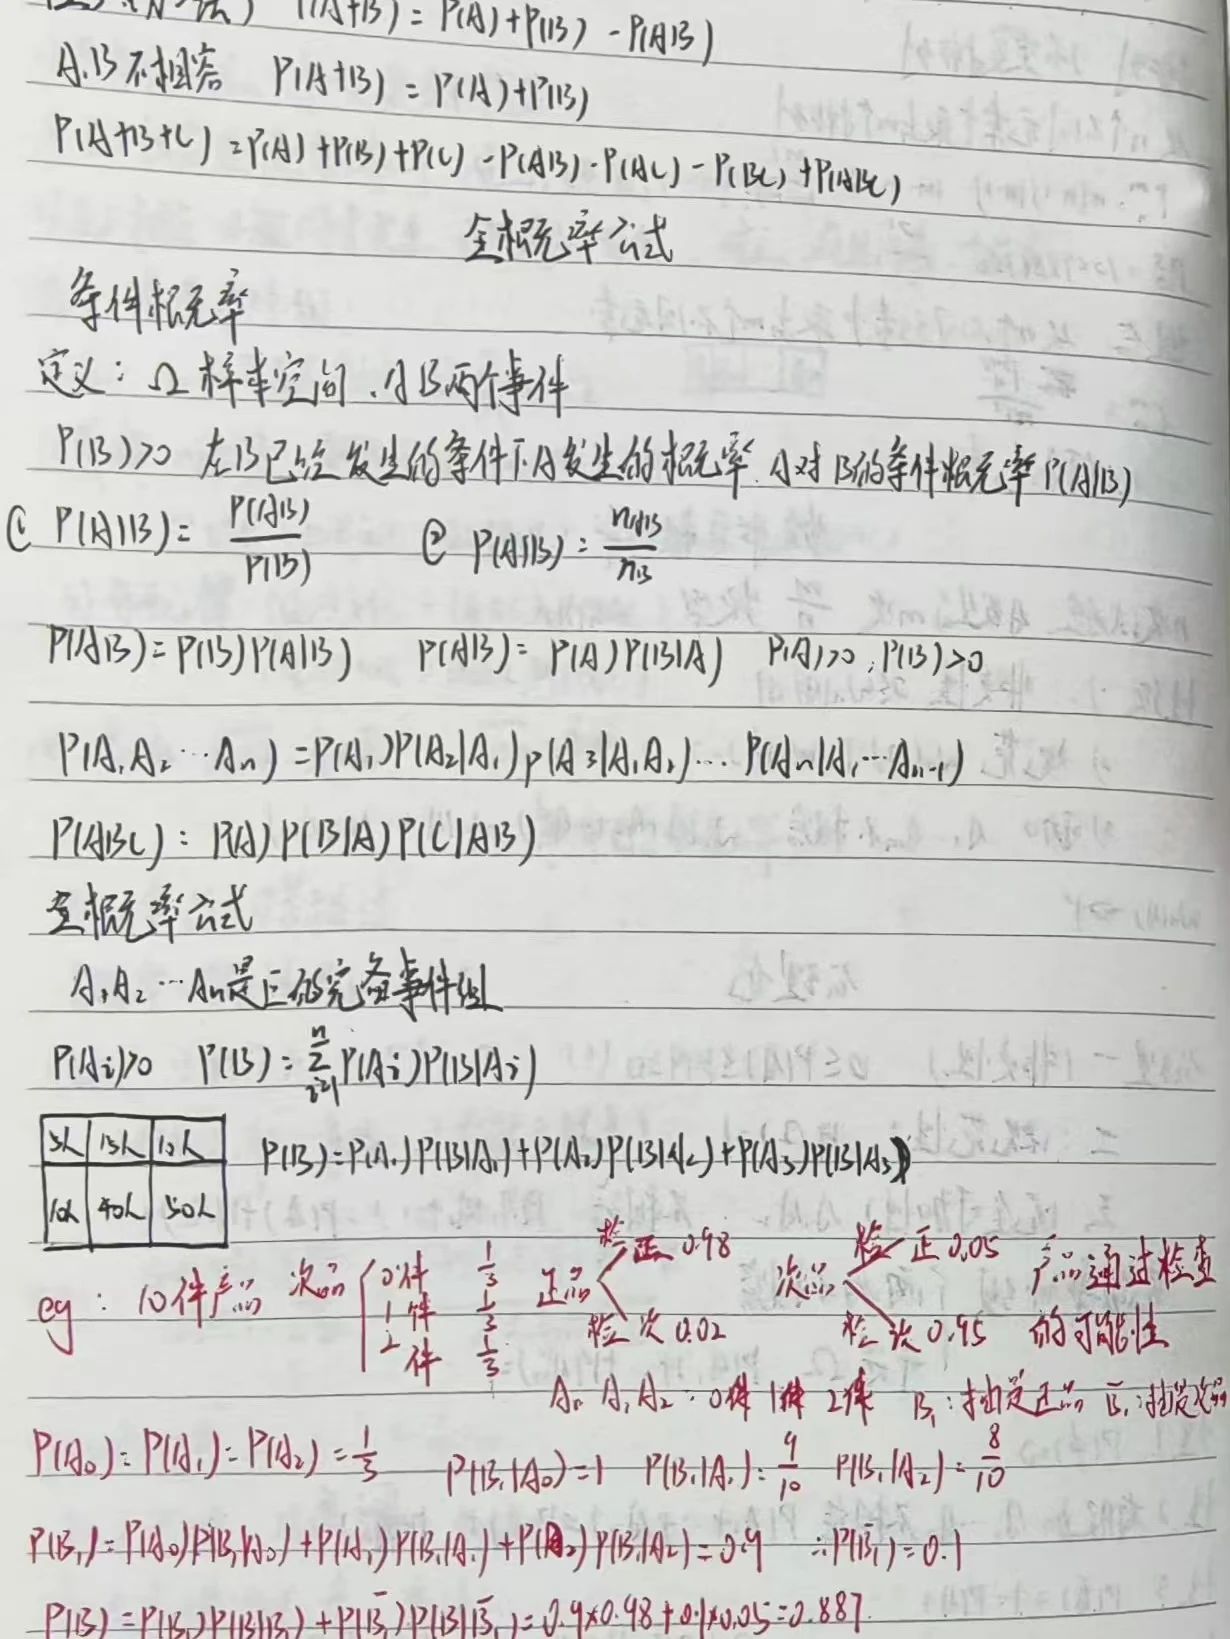 P(A+B) = P(A)+P(B) - P(AB)
A.B不相容 P(A+B) = P(A)+P(B)
P(A+B+C) = P(A)+P(B)+P(C) -P(AB)-P(AC)-P(BC)+P(ABC)
全概率公式
条件概率
定义：Ω样本空间.AB两个事件
P(B)>0 在B已经发生的条件下A发生的概率.A对B的条件概率P(A|B)
① P(A|B)= P(AB)/P(B) ② P(A|B)= nAB/nB
P(AB)=P(B)P(A|B) P(AB)=P(A)P(B|A) P(A)>0,P(B)>0
P(A₁A₂…An)=P(A₁)P(A₂|A₁)P(A3|A₁A₂)…P(An|A₁…An-1)
P(ABC)=P(A)P(B|A)P(C|AB)
全概率公式
A₁A₂…An是E的完备事件组
P(Ai)>0 P(B)=∑ⁿᵢ₌₁P(Ai)P(B|Ai)
5人 15人 10人
10人 40人 50人
P(B)=P(A₁)P(B|A₁)+P(A₂)P(B|A₂)+P(A₃)P(B|A₃)
eg：10件产品 次品 0件 1/3 1件 1/3 2件 1/3
正品 检正 0.98 检次 0.02
次品 检正 0.05 检次 0.95
产品通过检查的可能性
A₀ A₁ A₂：0件 1件 2件 B₁：抽是正品 B̄₁：抽是次品
P(A₀)=P(A₁)=P(A₂)=1/3 P(B₁|A₀)=1 P(B₁|A₁)=9/10 P(B₁|A₂)=8/10
P(B₁)=P(A₀)P(B₁|A₀)+P(A₁)P(B₁|A₁)+P(A₂)P(B₁|A₂)=0.9 ∴P(B̄₁)=0.1
P(B)=P(B₁)P(B|B₁)+P(B̄₁)P(B|B̄₁)=0.9×0.98+0.1×0.05=0.887